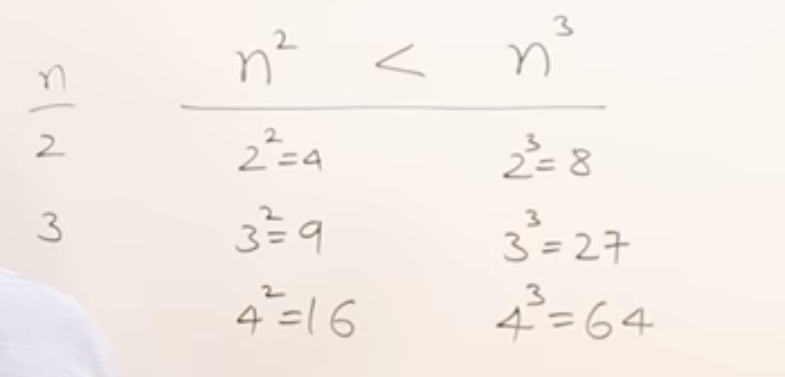 n n² < n³
2 2²=4 2³=8
3 3²=9 3³=27
4²=16 4³=64